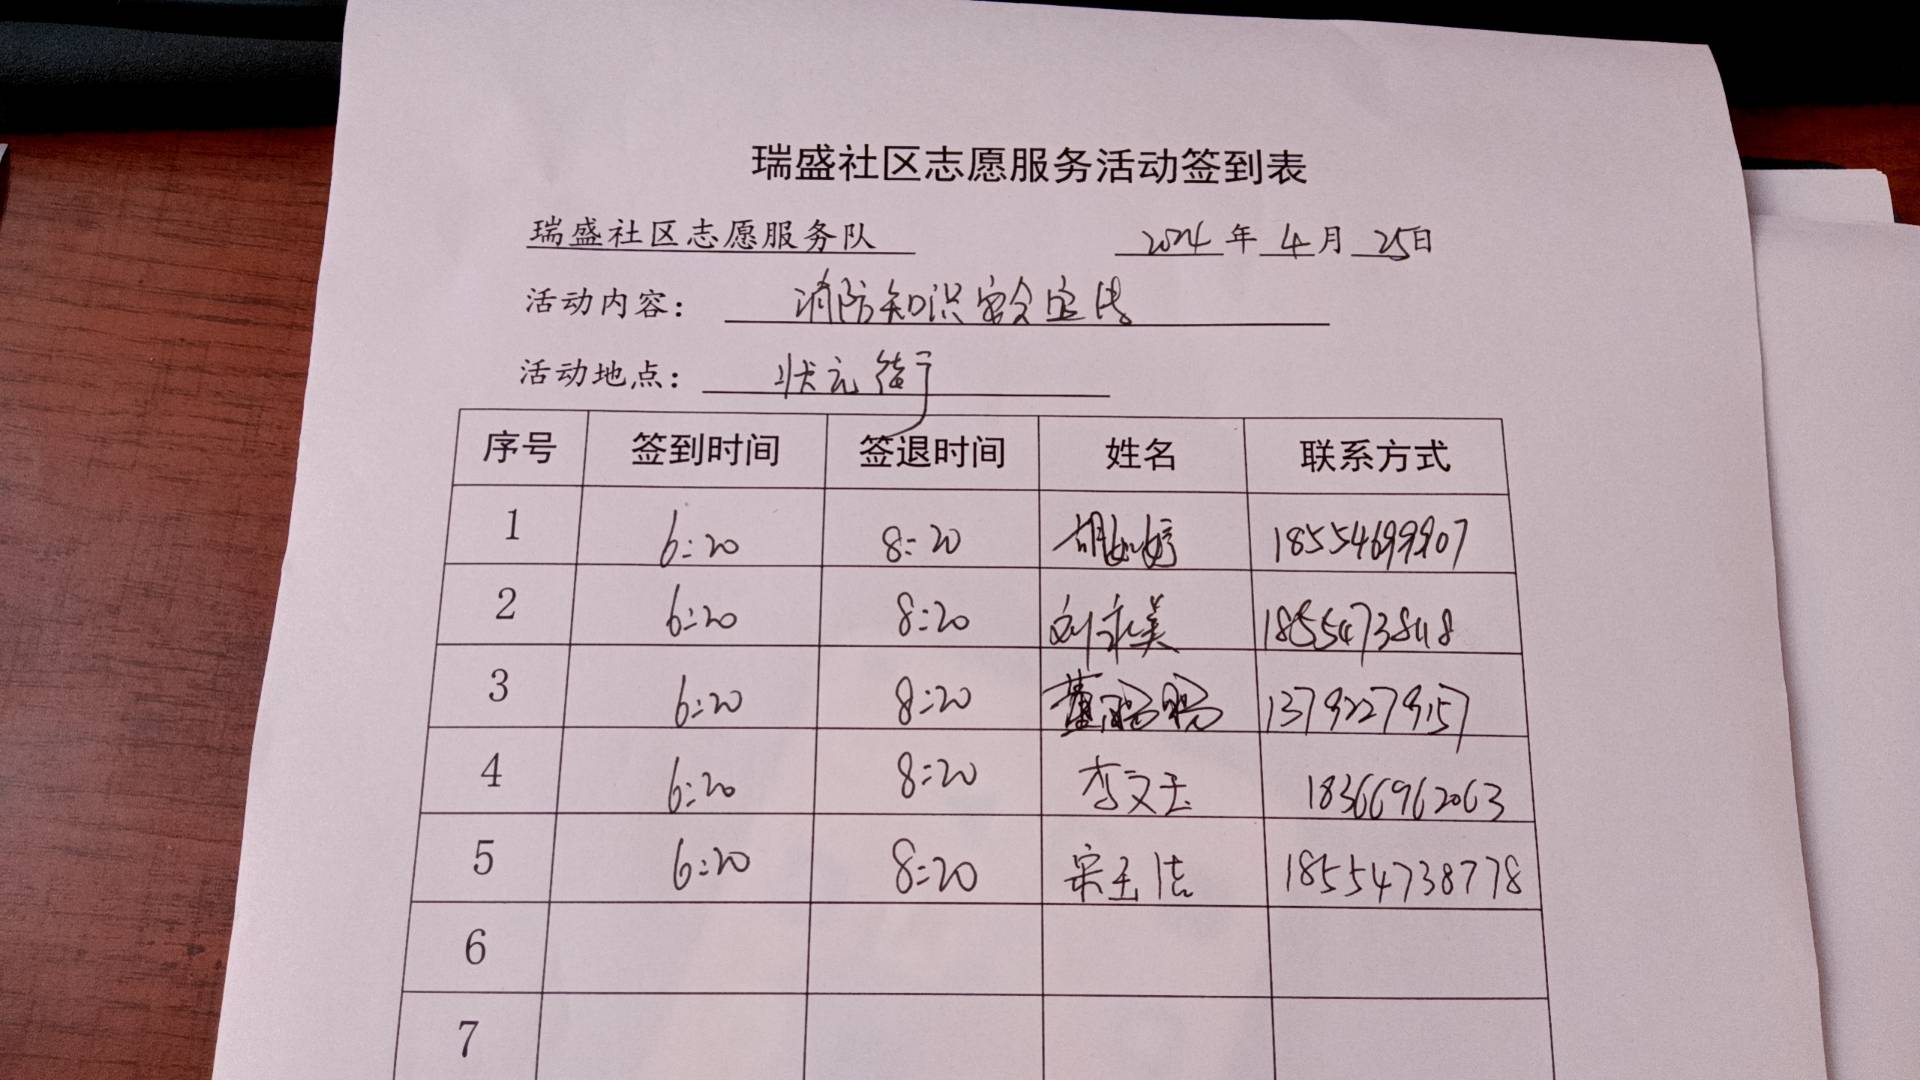 瑞盛社区志愿服务活动签到表
瑞盛社区志愿服务队 2024年4月25日
活动内容: 消防知识安全宣传
活动地点: 状元街
序号 签到时间 签退时间 姓名 联系方式
1 6:20 8:20 胡如婷 18554699907
2 6:20 8:20 刘永美 18554738418
3 6:20 8:20 13792279157
4 6:20 8:20 李文玉 18366962063
5 6:20 8:20 宋玉洁 18554738778
6
7